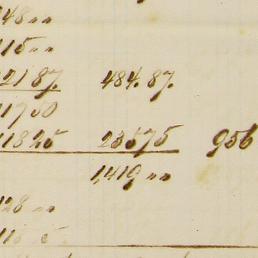 48 "
115 "
2187. 484.87.
1750
11825 23575 956
1,419 "
28 "